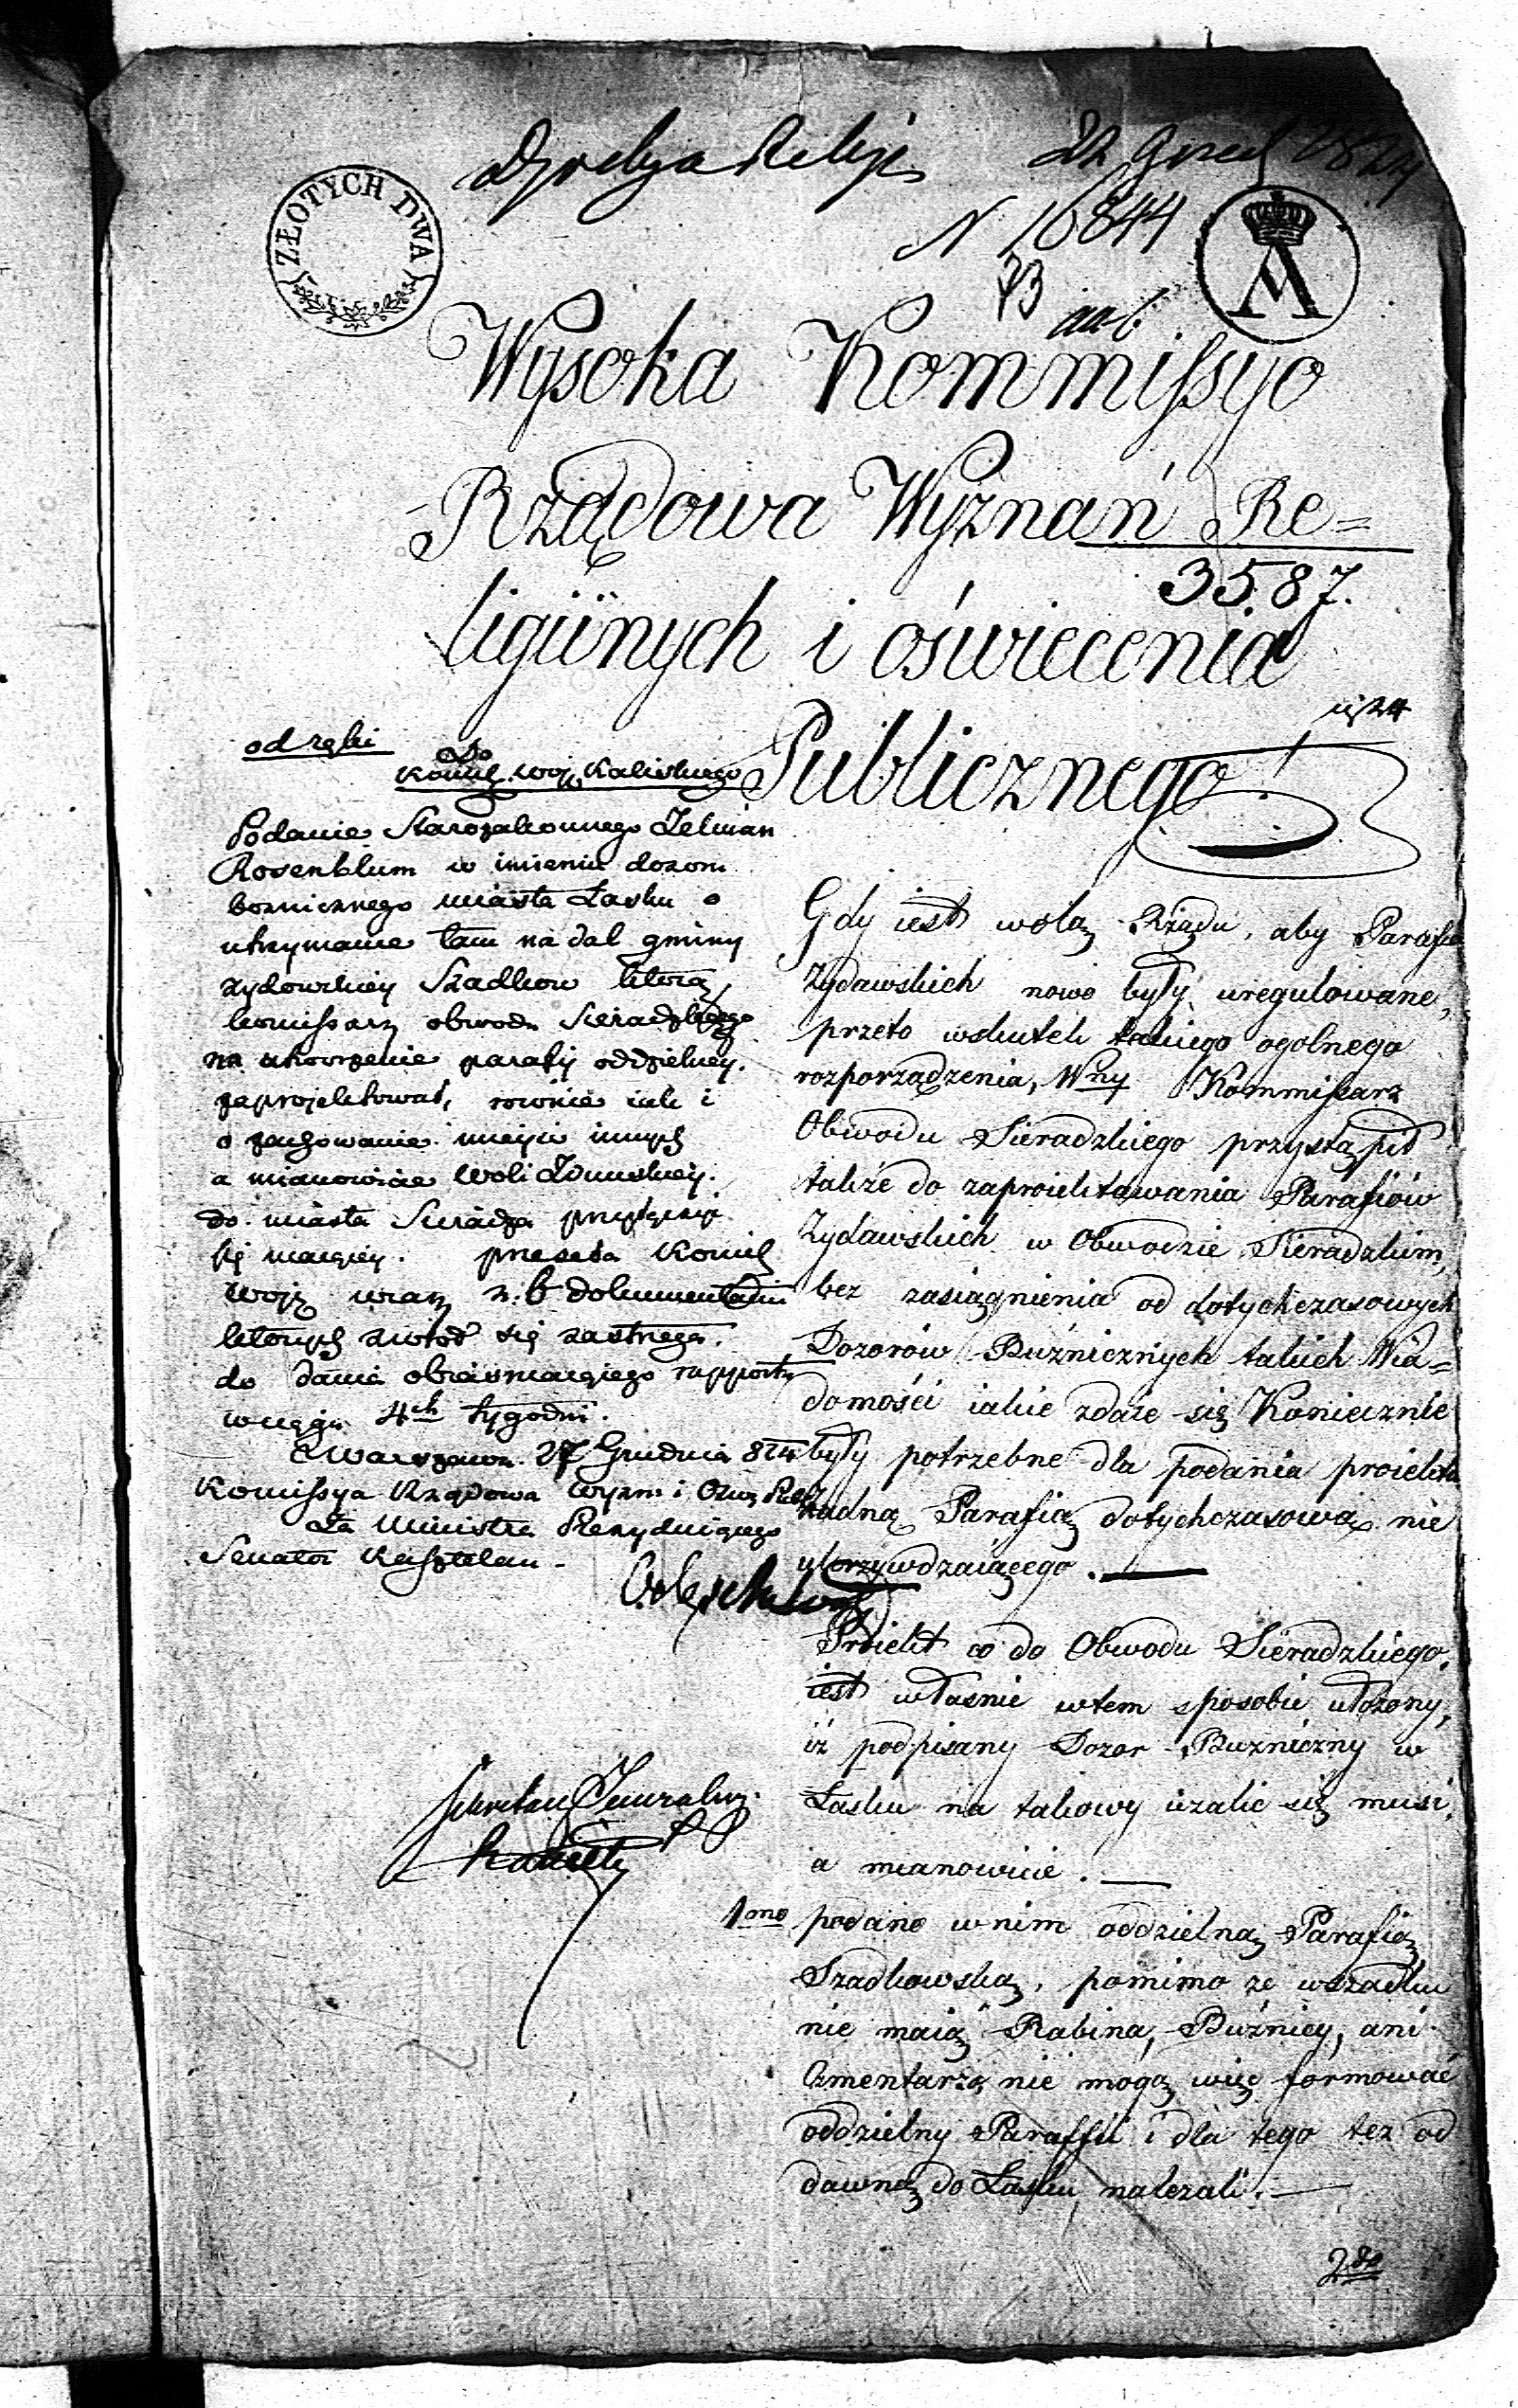 22 Grud 1824
N 16844
73
ZŁOTYCH DWA
A
Wysoka Kommissyo
Rządowa Wyznań Re=
35.87.
ligiinych i oświecenia
Publicznego
od ręki
Do
Komis Woj Kaliskiego
Podanie Starozakonnego Zelman
Rosenblum w imieniu dozoru
boznicznego miasta Łasku o
utrzymanie tam na dal gminy
zydowskiey Szadkow którą
kommissarz obwodu Sieradzkiego
na utworzenie parafij oddzielney
zaprojektował, rownie iak i
o zachowanie mieysc innych
a mianowicie Woli Zdunskiey
do miasta Sieradza przyłączyć
się maiącey. przesyła Komis
Woje wraz z 6 dokumentami
których zwrot się zastrzega
do dania obiasniaiącego rapportu
w ciągu 4ch tygodni.
z Warszawa 27 Grudnia 824
Komissya Rządowa Wyzn i Ośw Pub
Za Ministra Prezyduiącego
Senator Kasztelan
Sekretarz Jeneralny
Gdy iest wolą Rządu, aby Parafie
Zydawskich nowo były uregulowane,
przeto wskutek takiego ogolnego
rozporządzenia, Wny Kommissarz
Obwodu Sieradzkiego przystąpił
także do zaproiektawania Parafiów
Zydawskich w Obwodzie Sieradzkim,
bez zasiągnienia od dotychczasowych
Dozorów Buźnicznych takich Wia=
domości iakie zdaie się Koniecznie
były potrzebne dla podania proiektu
zadną Parafią dotychczasową nie
ukrzywdzaiącego.
Proiekt co do Obwodu Sieradzkiego,
iest własnie wtem sposobie ułozony,
iż podpisany Dozor Buzniczny w
Łasku na takowy uzalić się musi,
a mianowicie.
1mo podano wnim oddzielną Parafią
Szadkowską, pomimo ze wszadku
nie maią Rabina, Buźnicy, ani
Cmentarza nie mogą więc formować
oddzielny Paraffii i dla tego tez od
dawna do Łasku nalezali.
2do